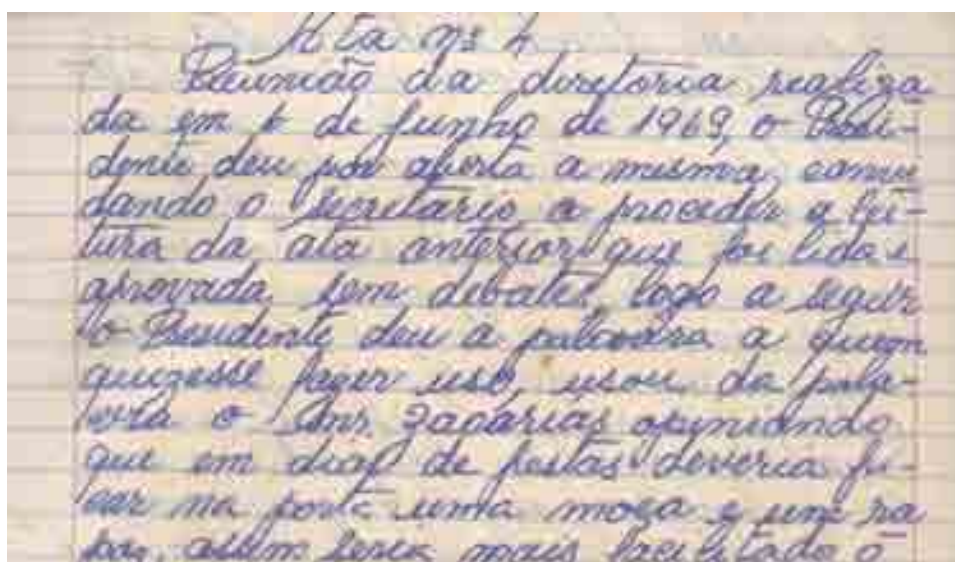 Ata nº 4
Reunião da diretoria realiza
da em de Junho de 1969, o Presi-
dente deu por aberta a mesma, convi
dando o Secretario a proceder a lei-
tura da ata anterior que foi lida e
aprovada sem debates, logo a seguir
o Presidente deu a palavra a quem
quizesse fazer uso, usou da pala-
vra o Snr. Zacarias opiniando
que em dias de festas deveria fi-
car na porta uma moça e um ra
paz, assim seria mais facilitado o